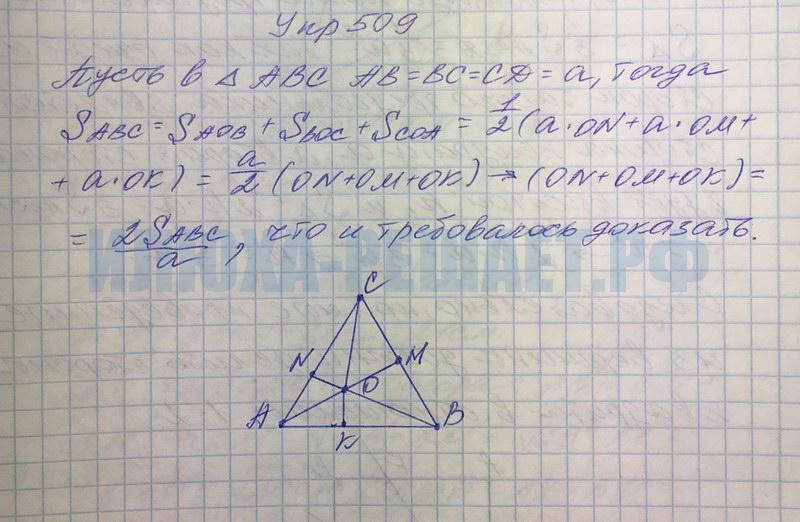 Упр 509
Пусть в △ ABC AB=BC=CD=a, тогда
S_ABC = S_AOB + S_BOC + S_COA = 1/2 (a·ON+a·OM+
+ a·OK) = a/2 (ON+OM+OK) → (ON+OM+OK) =
= 2S_ABC/a, что и требовалось доказать.
ИЛЮХА-РЕШАЕТ.РФ
C
N
M
O
A
B
K